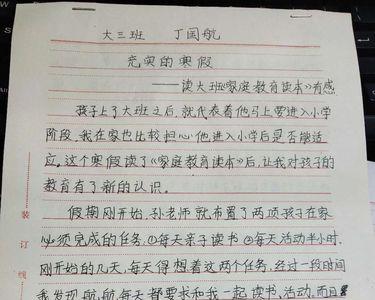 大三班 丁国航
充实的寒假
——读大班《家庭教育读本》有感
孩子上了大班之后,就代表着他马上要进入小学
阶段,我在家也比较担心他进入小学后是否能适
应。这个寒假读了《家庭教育读本》后,让我对孩子的
教育有了新的认识。
假期刚开始,孙老师就布置了两项孩子在家
必须完成的任务。①每天亲子读书②每天活动半小时.
刚开始的几天,每天得想着这两个任务,经过一段时间
我发现,航航每天都要求和我一起读书、活动,而且
装订线